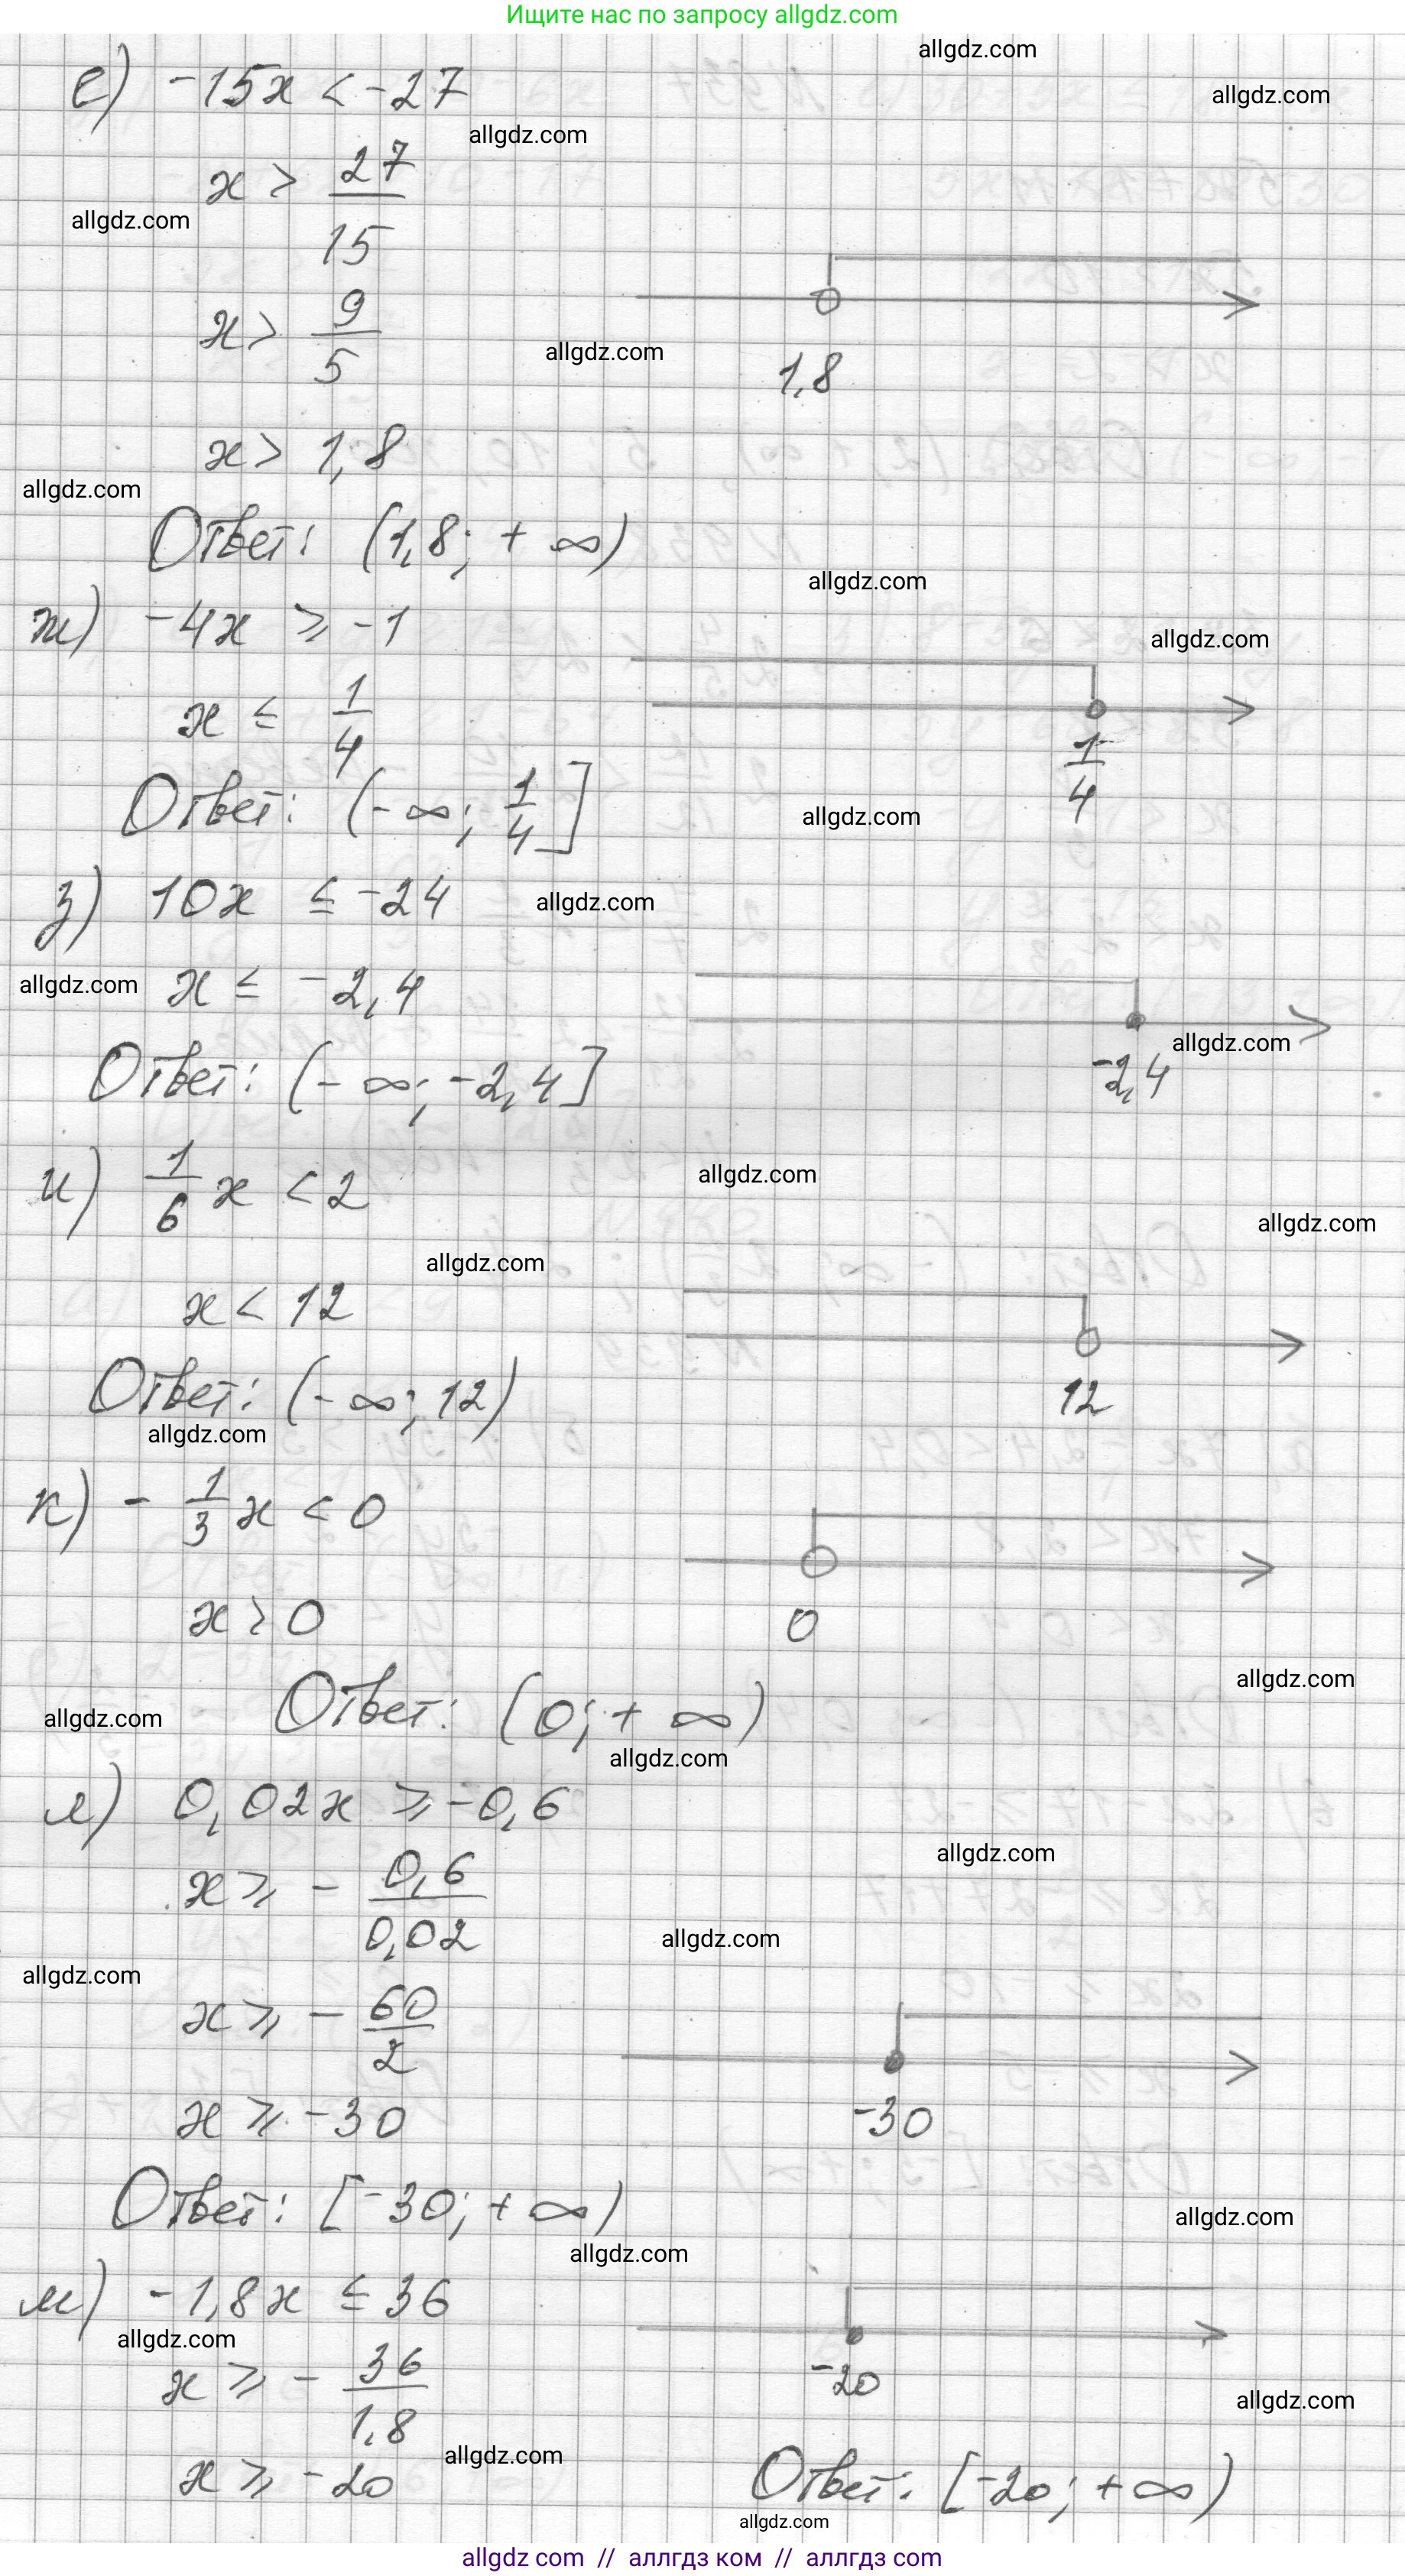 Ищите нас по запросу allgdz.com
allgdz.com
allgdz.com
е) -15x < -27
allgdz.com
x > 27/15
allgdz.com
x > 9/5
allgdz.com
1,8
x > 1,8
allgdz.com
Ответ: (1,8; +∞)
allgdz.com
ж) -4x ⩾ -1
allgdz.com
x ≤ 1/4
1/4
Ответ: (-∞; 1/4]
allgdz.com
з) 10x ≤ -24
allgdz.com
allgdz.com
x ≤ -2,4
allgdz.com
-2,4
Ответ: (-∞; -2,4]
и) 1/6 x < 2
allgdz.com
allgdz.com
allgdz.com
x < 12
12
Ответ: (-∞; 12)
allgdz.com
к) - 1/3 x < 0
x > 0
0
allgdz.com
Ответ: (0; +∞)
allgdz.com
allgdz.com
л) 0,02x ⩾ -0,6
allgdz.com
x ⩾ - 0,6/0,02
allgdz.com
allgdz.com
x ⩾ - 60/2
x ⩾ -30
-30
Ответ: [-30; +∞)
allgdz.com
allgdz.com
м) -1,8x ≤ 36
allgdz.com
x ⩾ - 36/1,8
-20
allgdz.com
allgdz.com
x ⩾ -20
Ответ: [-20; +∞)
allgdz.com
allgdz com // аллгдз ком // аллгдз com